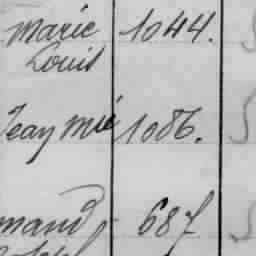 Marie 1044.
Louis
Jean Mie 1086.
mand 687